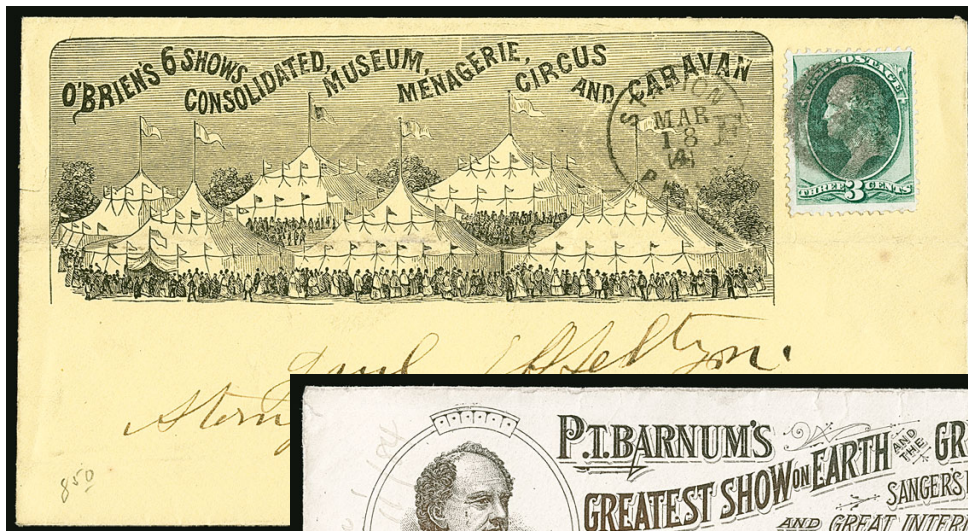 O'BRIEN'S 6 SHOWS CONSOLIDATED, MUSEUM, MENAGERIE, CIRCUS AND CARAVAN
STATION F
MAR
18
4
U.S. POSTAGE
THREE 3 CENTS
850
P.T. BARNUM'S
GREATEST SHOW ON EARTH AND THE GR
SANGER'S
AND GREAT INTER